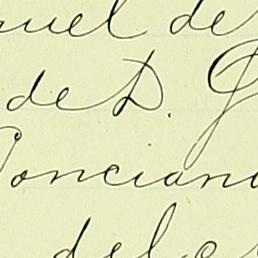 nuel de
de D.
Poncian
del